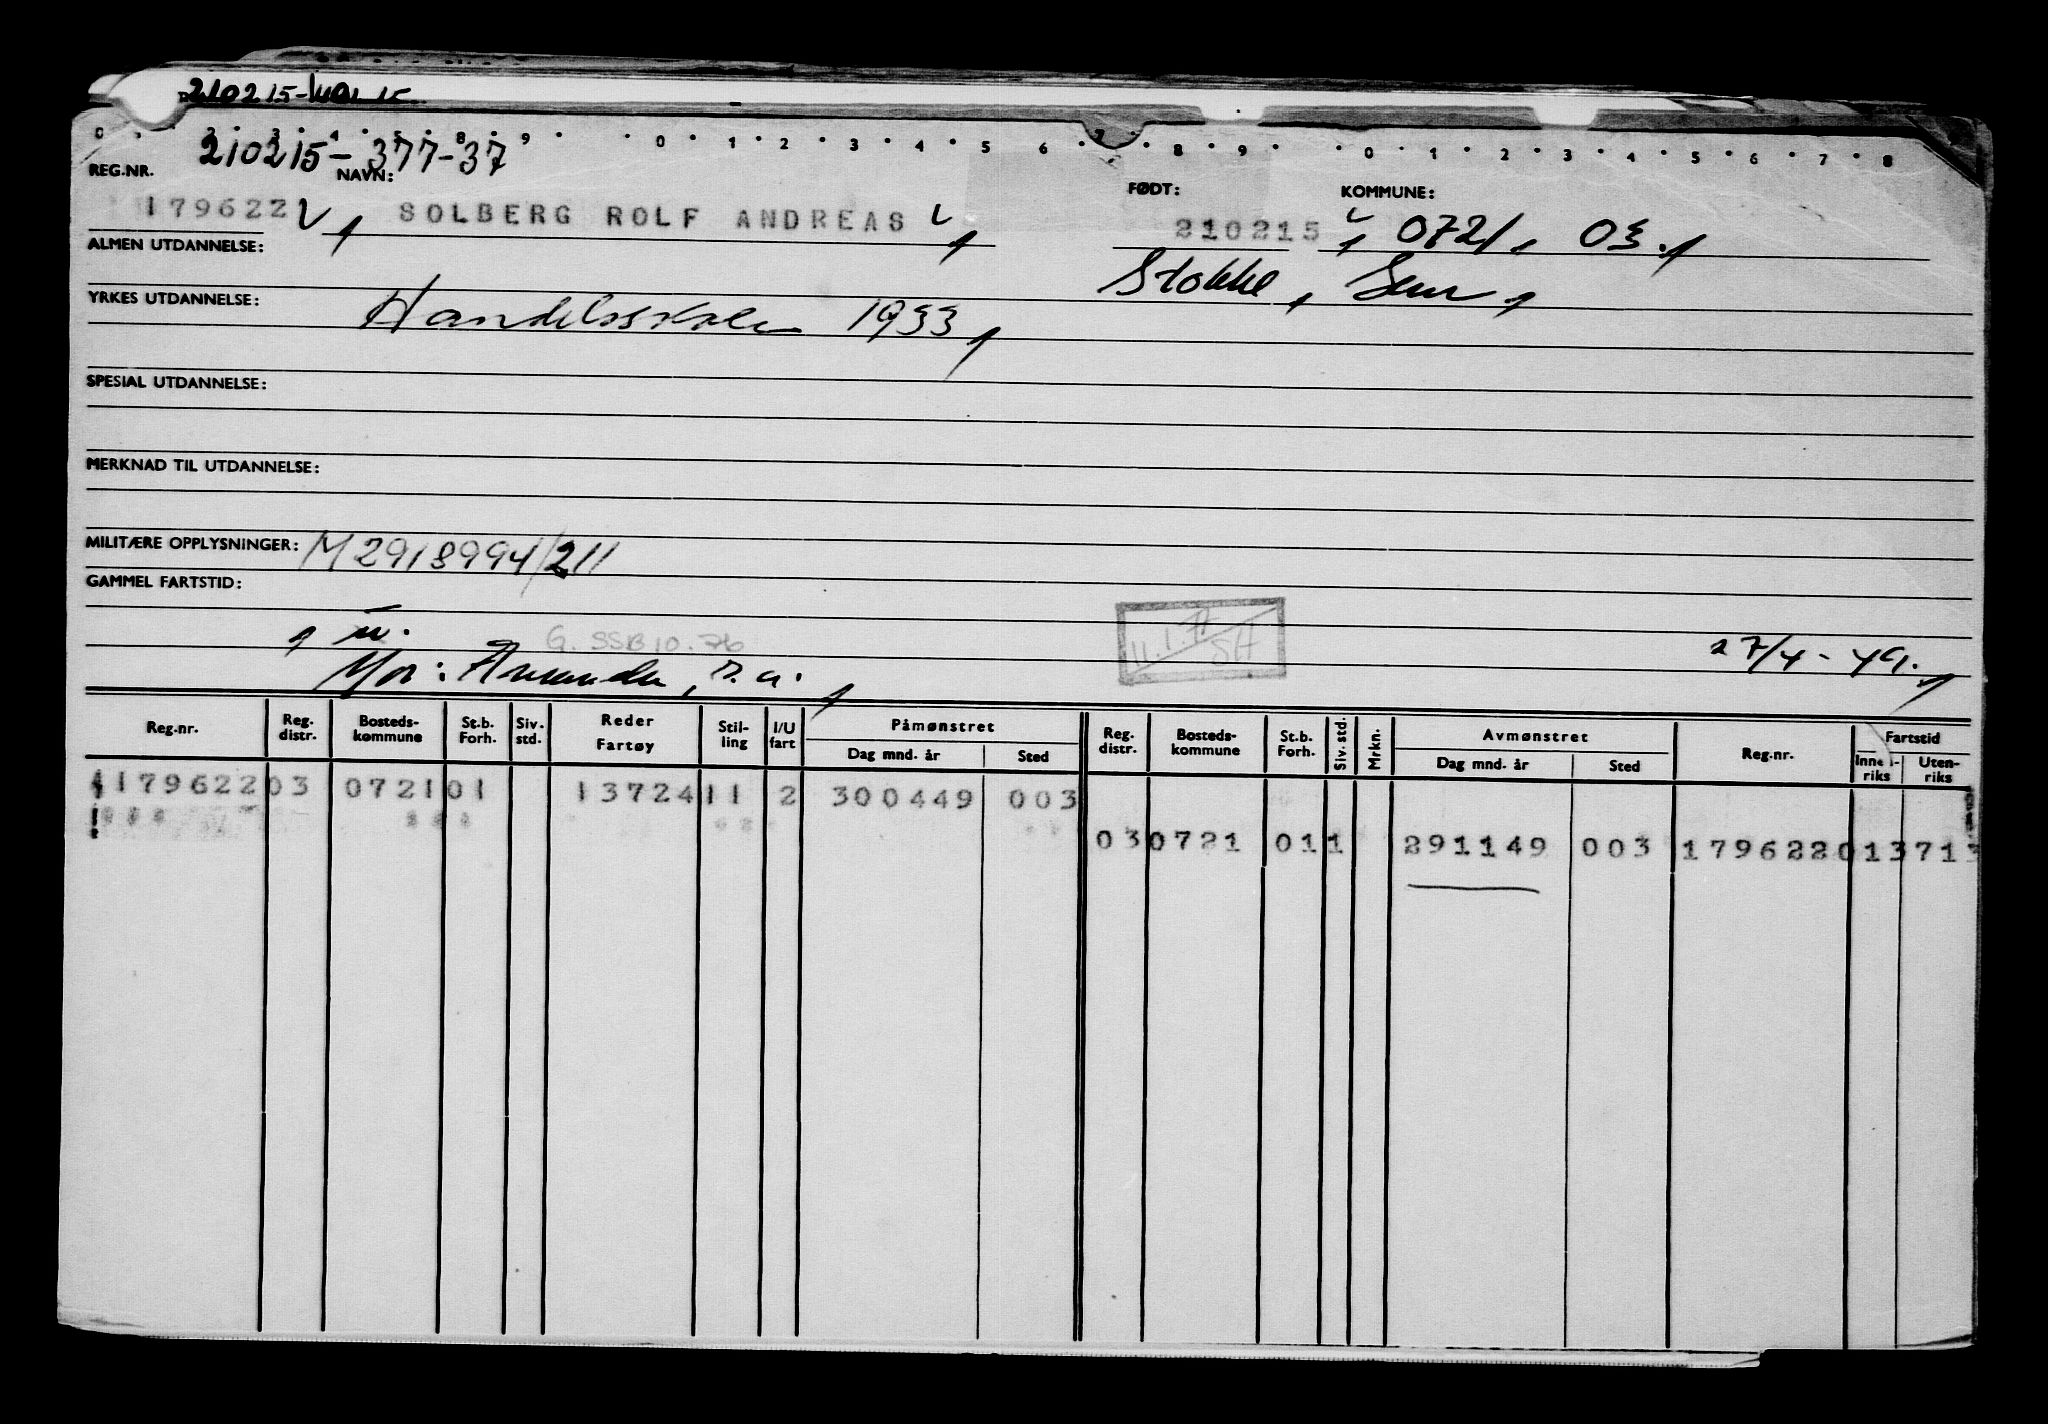 210215-
0 1 2 3 4 5 8 9 0 1 2 3 4 5 6 7 8 9 0 1 2 3 4 5 6 7 8
210215-377-37
REG.NR. NAVN: FØDT: KOMMUNE:
179622 SOLBERG ROLF ANDREAS 210215 0721, 03.
ALMEN UTDANNELSE:
Stokke, Sem,
YRKES UTDANNELSE: Handelsskole 1933,
SPESIAL UTDANNELSE:
MERKNAD TIL UTDANNELSE:
MILITÆRE OPPLYSNINGER: M2918994/211
GAMMEL FARTSTID:
u. G. SSB 10.76 11.1.77 SH 27/4-49.
Mor: Amanda, s.a.,
Reg.nr. Reg. distr. Bosteds-kommune St.b. Forh. Siv. std. Reder Fartøy Stil-ling I/U fart Påmønstret Dag mnd. år Sted Reg. distr. Bosteds-kommune St.b. Forh. Siv. std. Mrkn. Avmønstret Dag mnd. år Sted Reg.nr. Fartstid Innen-riks Uten-riks
179622 03 0721 01 13724 11 2 300449 003
03 0721 01 1 291149 003 179622 013 713